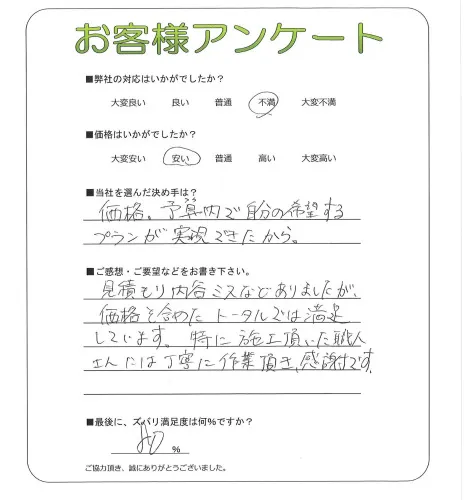 お客様アンケート
■弊社の対応はいかがでしたか？
大変良い 良い 普通 不満 大変不満
■価格はいかがでしたか？
大変安い 安い 普通 高い 大変高い
■当社を選んだ決め手は？
価格。予算内で自分の希望する
プランが実現できたから。
■ご感想・ご要望などをお書き下さい。
見積もり内容ミスなどありましたが、
価格を含めたトータルでは満足
しています。特に施工頂いた職人
さんには丁寧に作業頂き、感謝です。
■最後に、ズバリ満足度は何％ですか？
％
ご協力頂き、誠にありがとうございました。